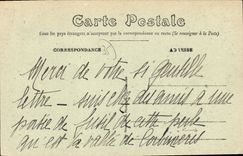 Carte Postale
Tous les pays étrangers n'acceptent pas la correspondance au recto (Se renseigner à la Poste)
CORRESPONDANCE
ADRESSE
Merci de votre si gentille
lettre - suis chez des amis à une
portée de fusil de cette
qui est la vallée de